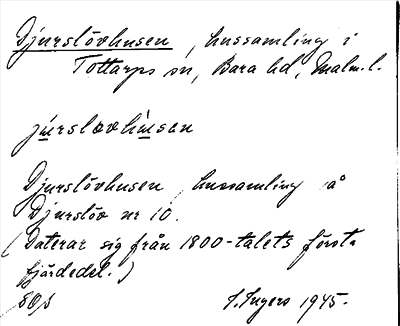 Djurslövhusen, hussamling i
Tottarps sn, Bara hd, Malm. l.
jurslovhusan
Djurslövhusen, hussamling å
Djurslöv nr 10.
(Daterar sig från 1800-talets första
fjärdedel.)
I. Ingers 1945.